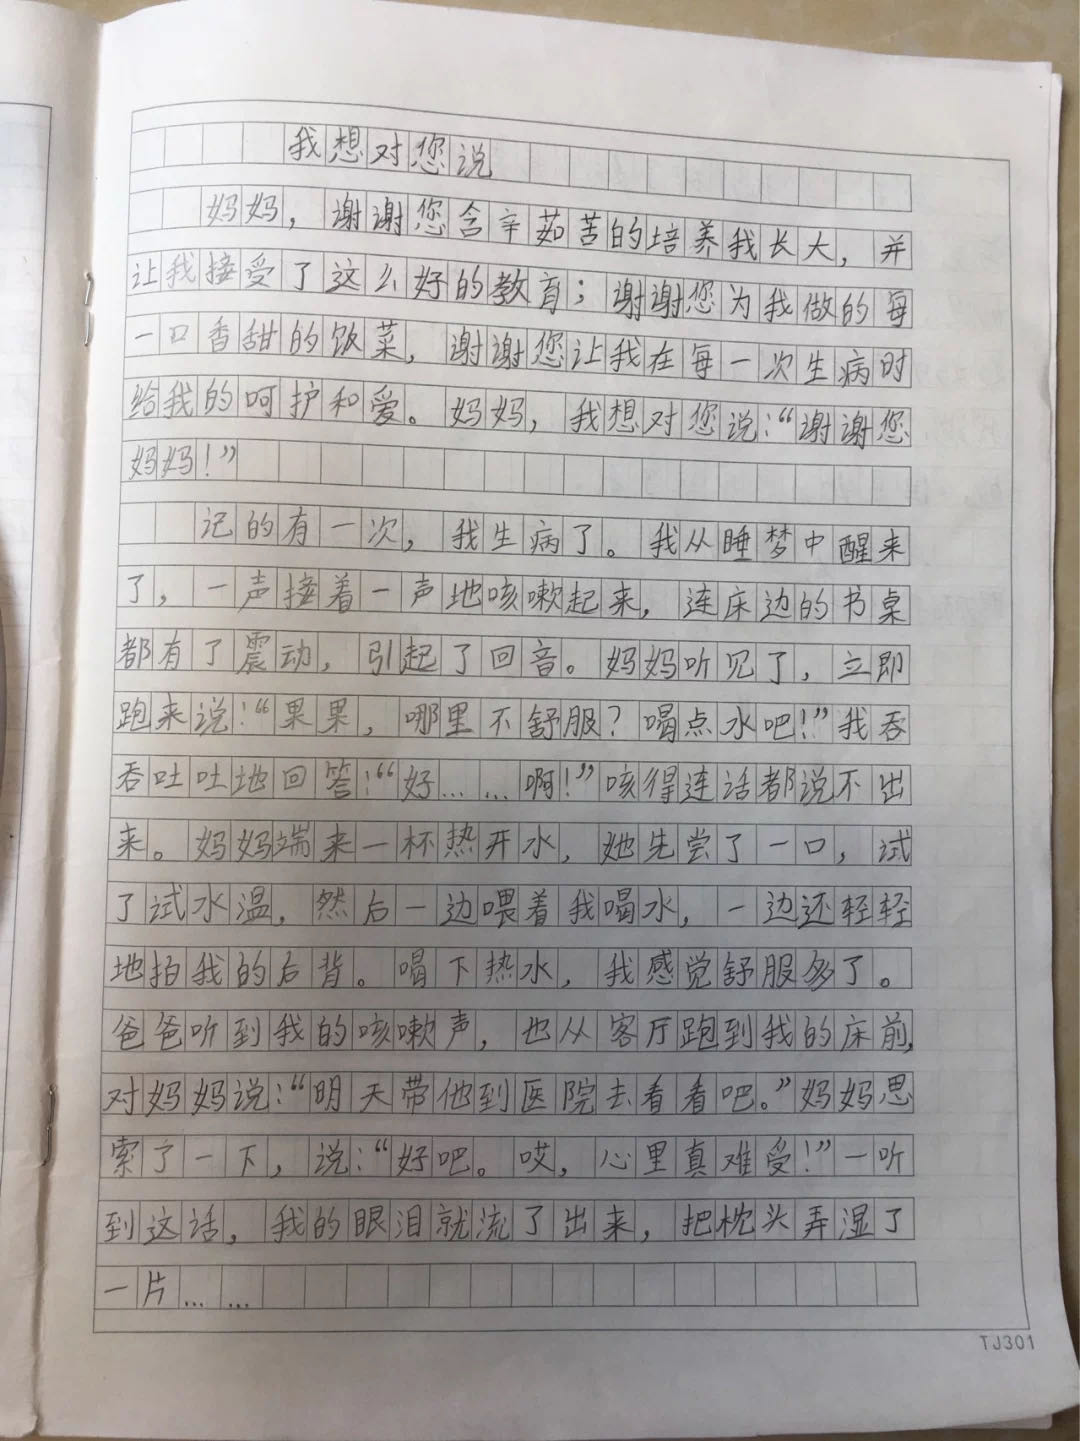 我想对您说
妈妈，谢谢您含辛茹苦的培养我长大，并
让我接受了这么好的教育；谢谢您为我做的每
一口香甜的饭菜，谢谢您让我在每一次生病时
给我的呵护和爱。妈妈，我想对您说：“谢谢您
妈妈！”
记的有一次，我生病了。我从睡梦中醒来
了，一声接着一声地咳嗽起来，连床边的书桌
都有了震动，引起了回音。妈妈听见了，立即
跑来说：“果果，哪里不舒服？喝点水吧！”我吞
吞吐吐地回答：“好……啊！”咳得连话都说不出
来。妈妈端来一杯热开水，她先尝了一口，试
了试水温，然后一边喂着我喝水，一边还轻轻
地拍我的后背。喝下热水，我感觉舒服多了。
爸爸听到我的咳嗽声，也从客厅跑到我的床前，
对妈妈说：“明天带他到医院去看看吧。”妈妈思
索了一下，说：“好吧。哎，心里真难受！”一听
到这话，我的眼泪就流了出来，把枕头弄湿了
一片……
TJ301